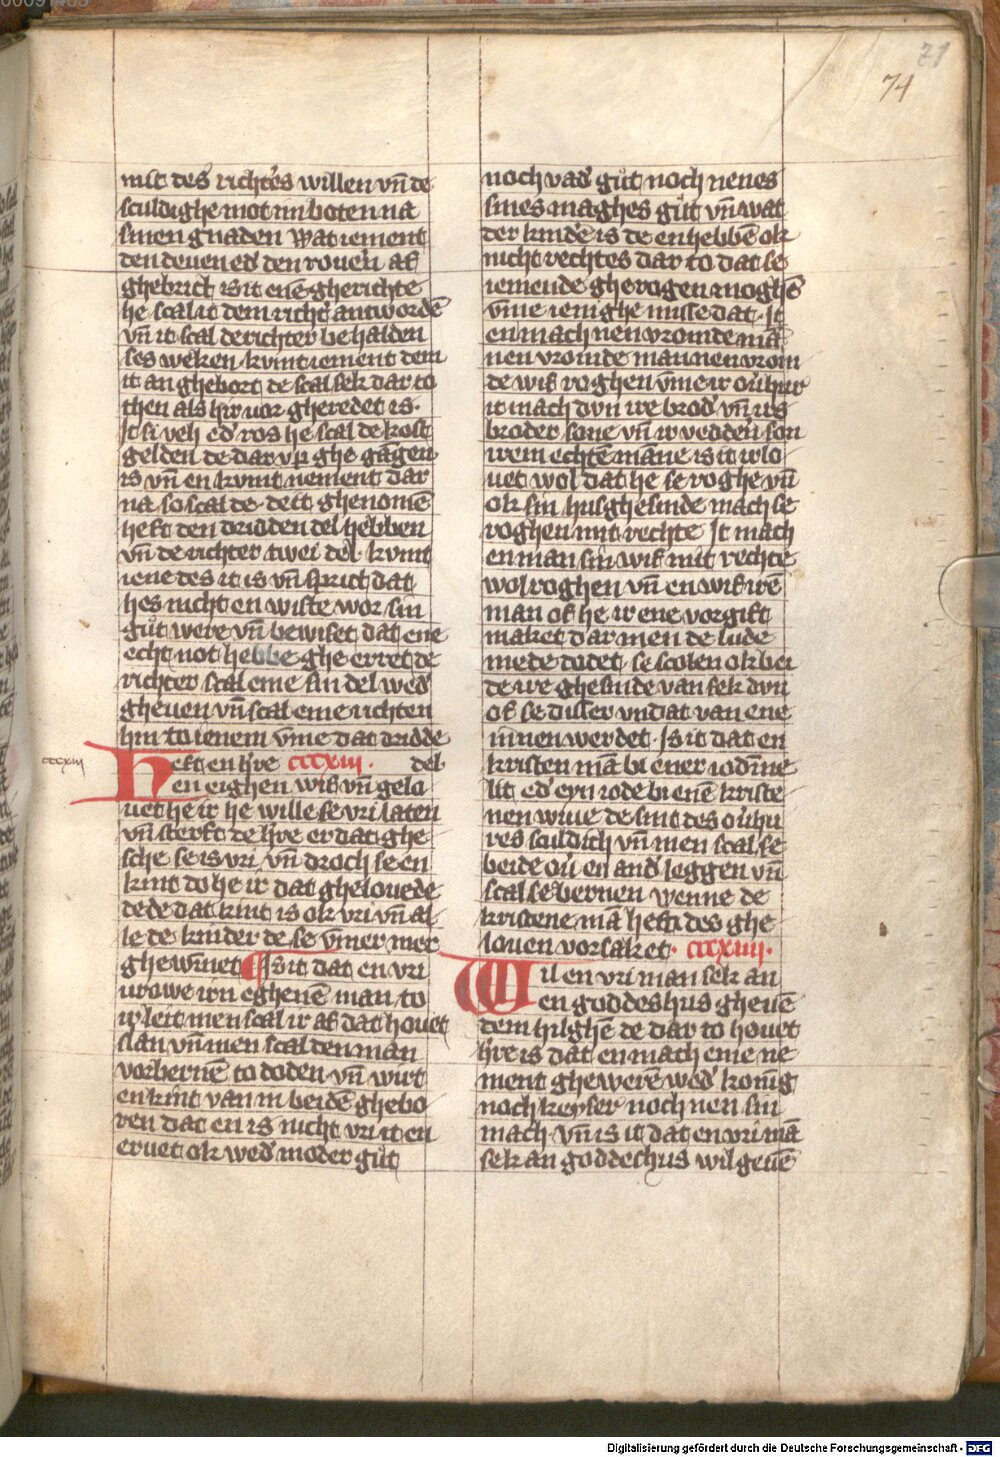 71
74
mit des richt's willen vn̄ de
sculdighe mot im boten na
sinen gnaden Wat iement
den deuen ed' den roueru af
ghebrict is it enē gherichte
he scal it dem richt' antwordē
vn̄ it scal de richter behalden
ses weken kvmt iement dem
it an ghebort de scal sek dar to
then als hir uor gheredet is.
Jt si veh ed' ros he scal de kost
gelden de dar vp ghe gāgen
is vn̄ en kvmt nement dar
na so scal de de it ghenomē
heft den dridden del hebben
vn̄ de richter twei del kvmt
iene des it is vn̄ sprict dat
hes nicht en wiste wor sin
gůt were vn̄ bewiset dat ene
echt not hebbe ghe erret de
richter scal eme sin del wed'
gheuen vn̄ scal eme richten
hin to ienem vm̄e dat dridde
del
cccxiii
Heft en h're cccxiii.
en eighen wif vn̄ gela
uet he ir he wille se vri laten
vn̄ sterft de h're er dat ghe
sche se is vri vn̄ droch se en
kint do he ir dat ghelouede
dede dat kint is ok vri vn̄ al
le de kinder de se vm̄er mer
ghewīnet Js it dat en vri
urowe irn egheuē man to
ir leit men scal ir af dat houet
slan vn̄ men scal den man
vorbernē to doden vn̄ wirt
en kint van in beidē ghebo
ren dat en is nicht vri it en
eruet ok wed' moder gůt
noch vad' gůt noch nenes
sines maghes gůt vn̄ wat
der kindē is de en hebbē ok
nicht rechtes dar to dat se
iemende ghe rogen moghē
vm̄e ienighe misse dat. Jt
en mach nen vromde mā
nen vromde man nen vrom
de wif roghen vm̄e ir ou'hur
it mach dvn ire brod' vn̄ irs
broder sone vn̄ ir veddern son
irem echtē mane is it irlo
uet wol dat he se roghe vn̄
ok sin husghesinde mach se
roghen mit rechte Jt mach
en man sin wif mit rechte
wol roghen vn̄ en wif irē
man of he ir ene vorgift
maket dar men de lude
mede dodet se scolen ok bei
de ire ghesinde van sek dvn
of se duser vndat van ene
innen werdet. Js it dat en
kristen mā bi ener iodīne
lit ed' eyn iode bi enē kriste
nen wiue de sint des ou'hu
res sculdich vn̄ men scal se
beide ou' en and' leggen vn̄
scal se bernen wenne de
kristene mā heft des ghe
louen vorsaket. cccxiiii.
Wil en vri man sek an
en goddeshus gheuē
dem hilghē de dar to houet
h're is dat en mach eme ne
ment ghewerē wed' konīg
noch keyser noch nen sin
mach vn̄ is it dat en vri mā
sek an goddeshus wil geuē
Digitalisierung gefördert durch die Deutsche Forschungsgemeinschaft - DFG